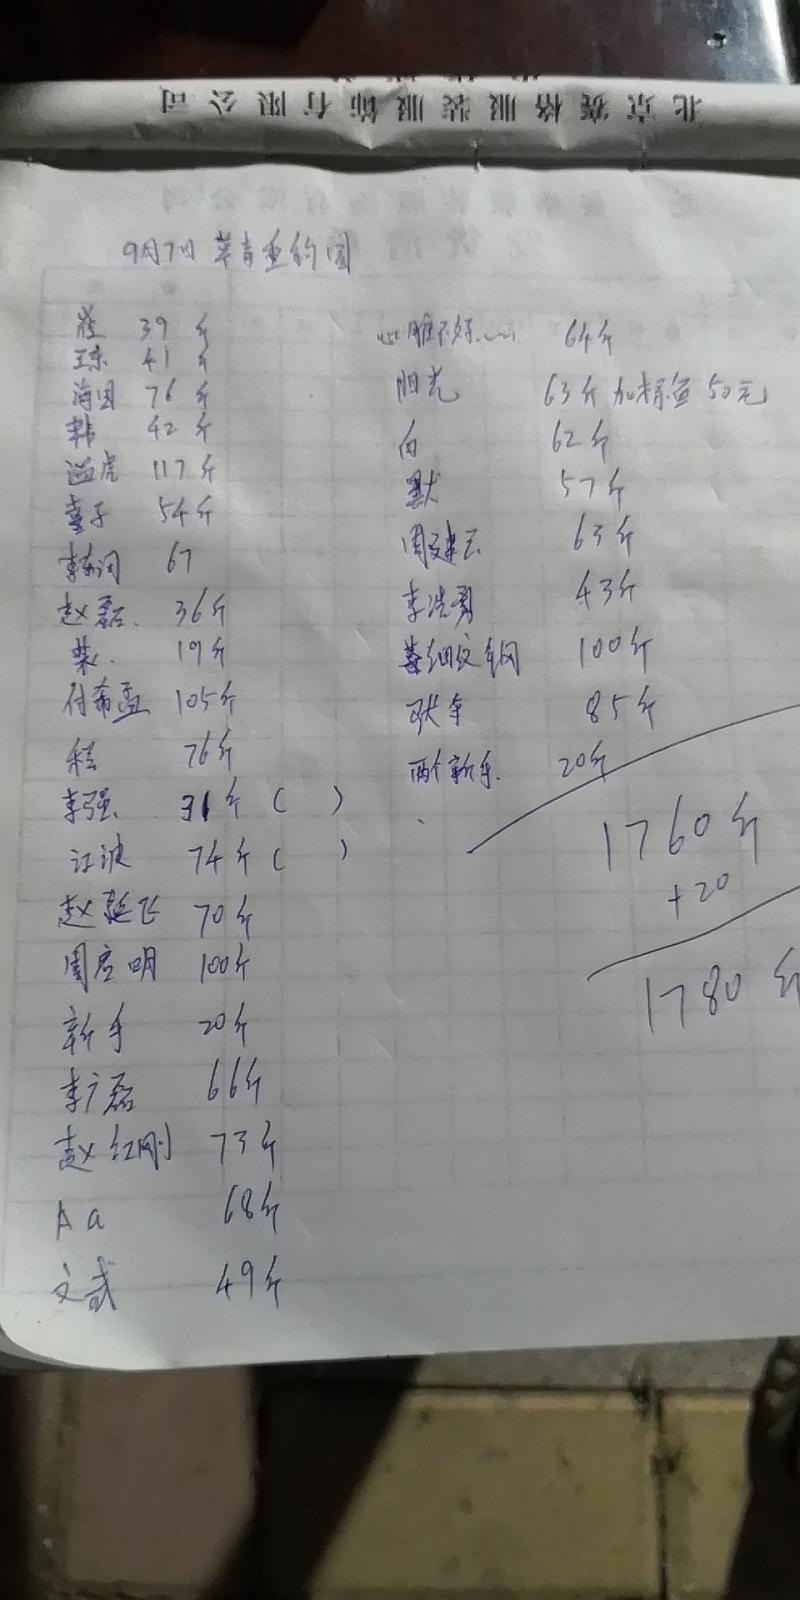 北京赛格服装服饰有限公司
9月7日 草青垂钓园
崔 39斤
王东 41斤
海国 76斤
韩 42斤
溢虎 117斤
童子 54斤
67
赵磊. 36斤
柴. 19斤
付希孟 105斤
程 76斤
李强 31斤( )
江波 74斤( )
赵延飞 70斤
周启明 100斤
新手 20斤
李广磊 66斤
赵红刚 73斤
Aa 68斤
文武 49斤
心脏不好. 64斤
阳光 63斤 加标鱼 50元
向 62斤
默 57斤
周建云 63斤
李洪勇 43斤
100斤
85斤
两个新手. 20斤
1760斤
+20
1780斤